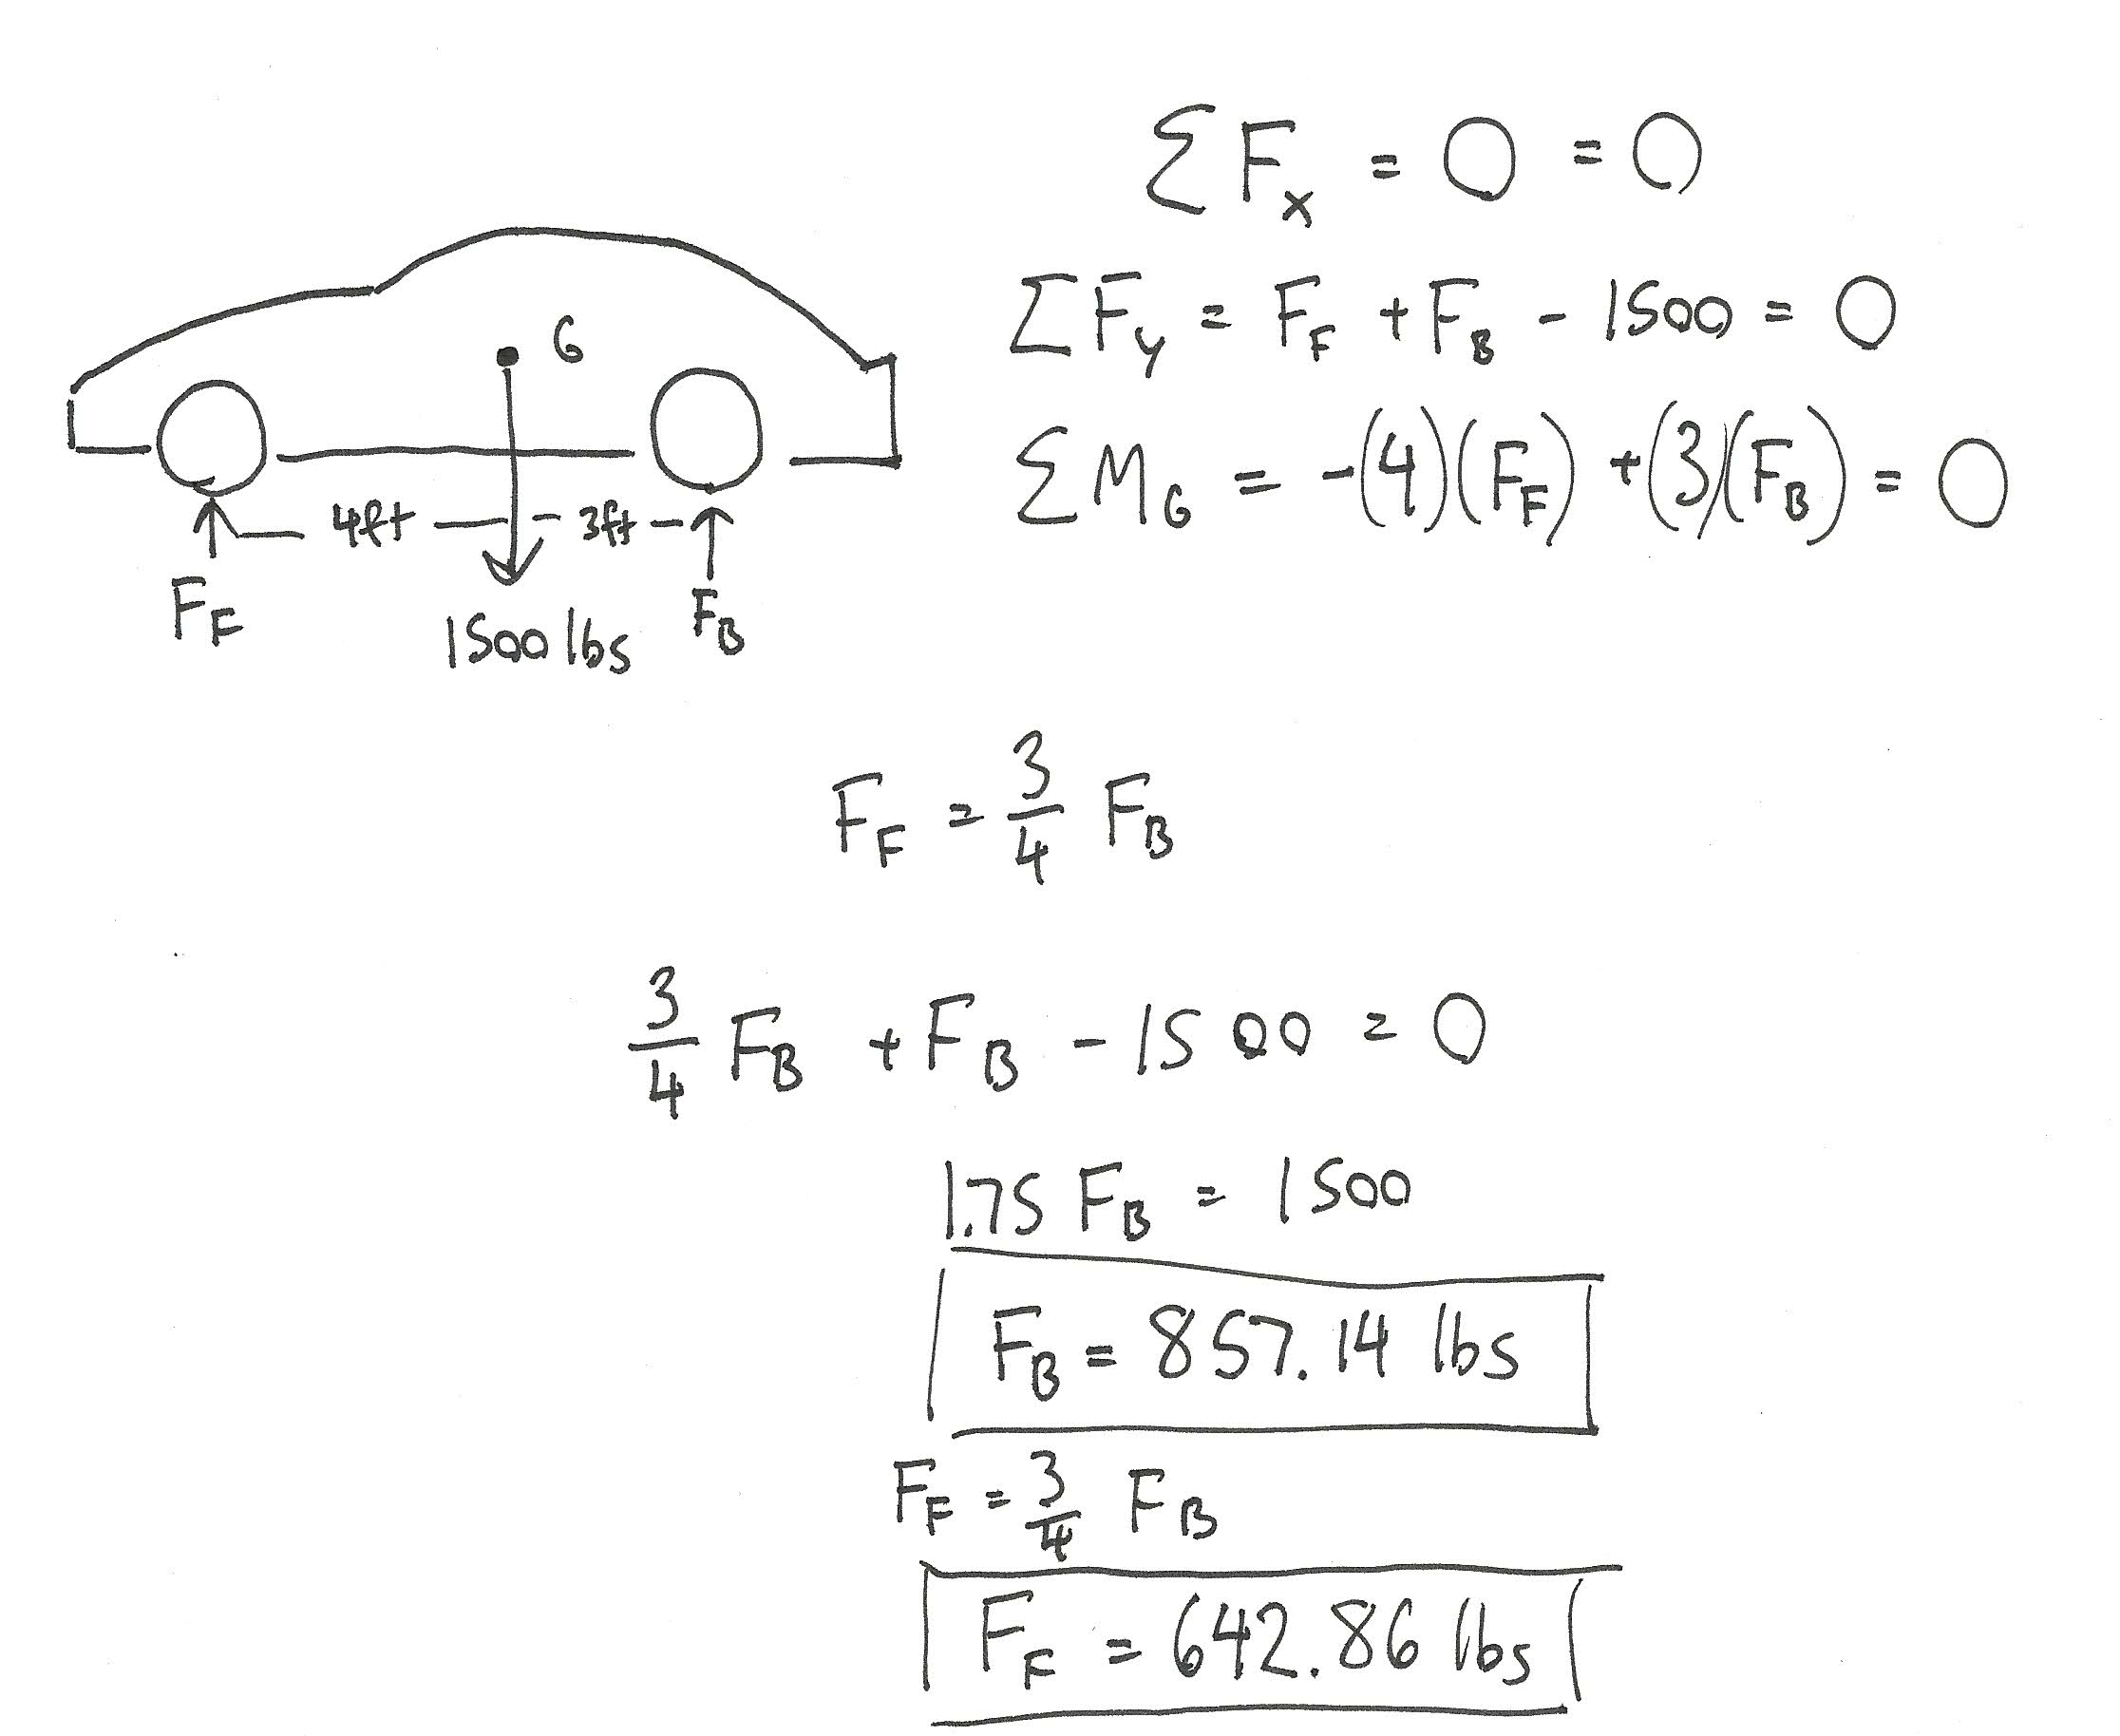 G
4ft
3ft
F_F
1500 lbs
F_B
ΣF_x = 0 = 0
ΣF_y = F_F + F_B - 1500 = 0
ΣM_G = -(4)(F_F) + (3)(F_B) = 0
F_F = 3/4 F_B
3/4 F_B + F_B - 1500 = 0
1.75 F_B = 1500
F_B = 857.14 lbs
F_F = 3/4 F_B
F_F = 642.86 lbs